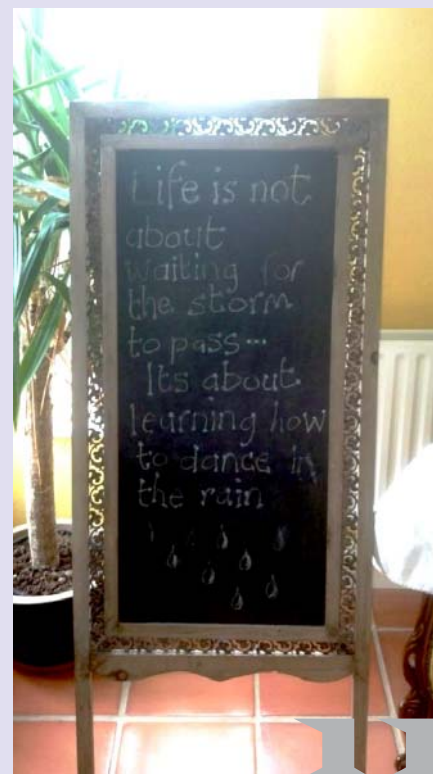 Life is not
about
waiting for
the storm
to pass...
Its about
learning how
to dance in
the rain